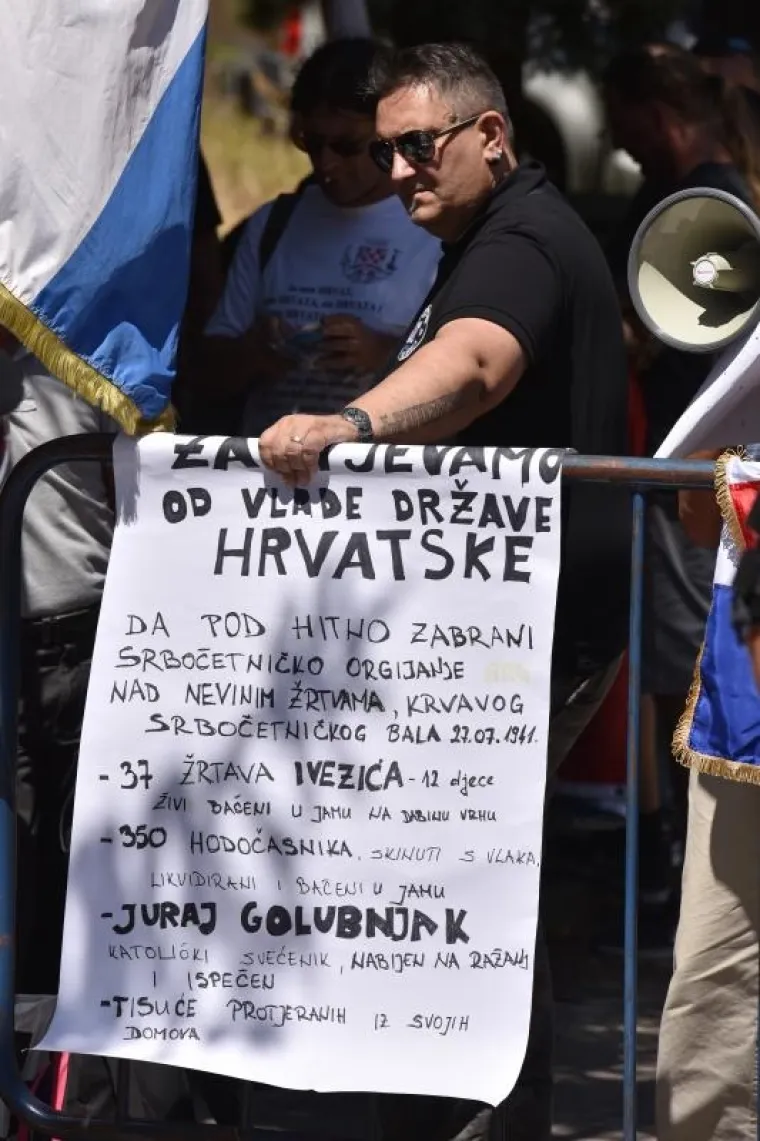 ZAHTJEVAMO
OD VLADE DRŽAVE
HRVATSKE
DA POD HITNO ZABRANI
SRBOČETNIČKO ORGIJANJE
NAD NEVINIM ŽRTVAMA, KRVAVOG
SRBOČETNIČKOG BALA 27.07.1941.
- 37 ŽRTAVA IVEZIĆA - 12 djece
ŽIVI BAČENI U JAMU NA DABINU VRHU
- 350 HODOČASNIKA, SKINUTI S VLAKA,
LIKVIDIRANI I BAČENI U JAMU
- JURAJ GOLUBNJAK
KATOLIČKI SVEĆENIK, NABIJEN NA RAŽANJ
I ISPEČEN
- TISUĆE PROTJERANIH IZ SVOJIH
DOMOVA